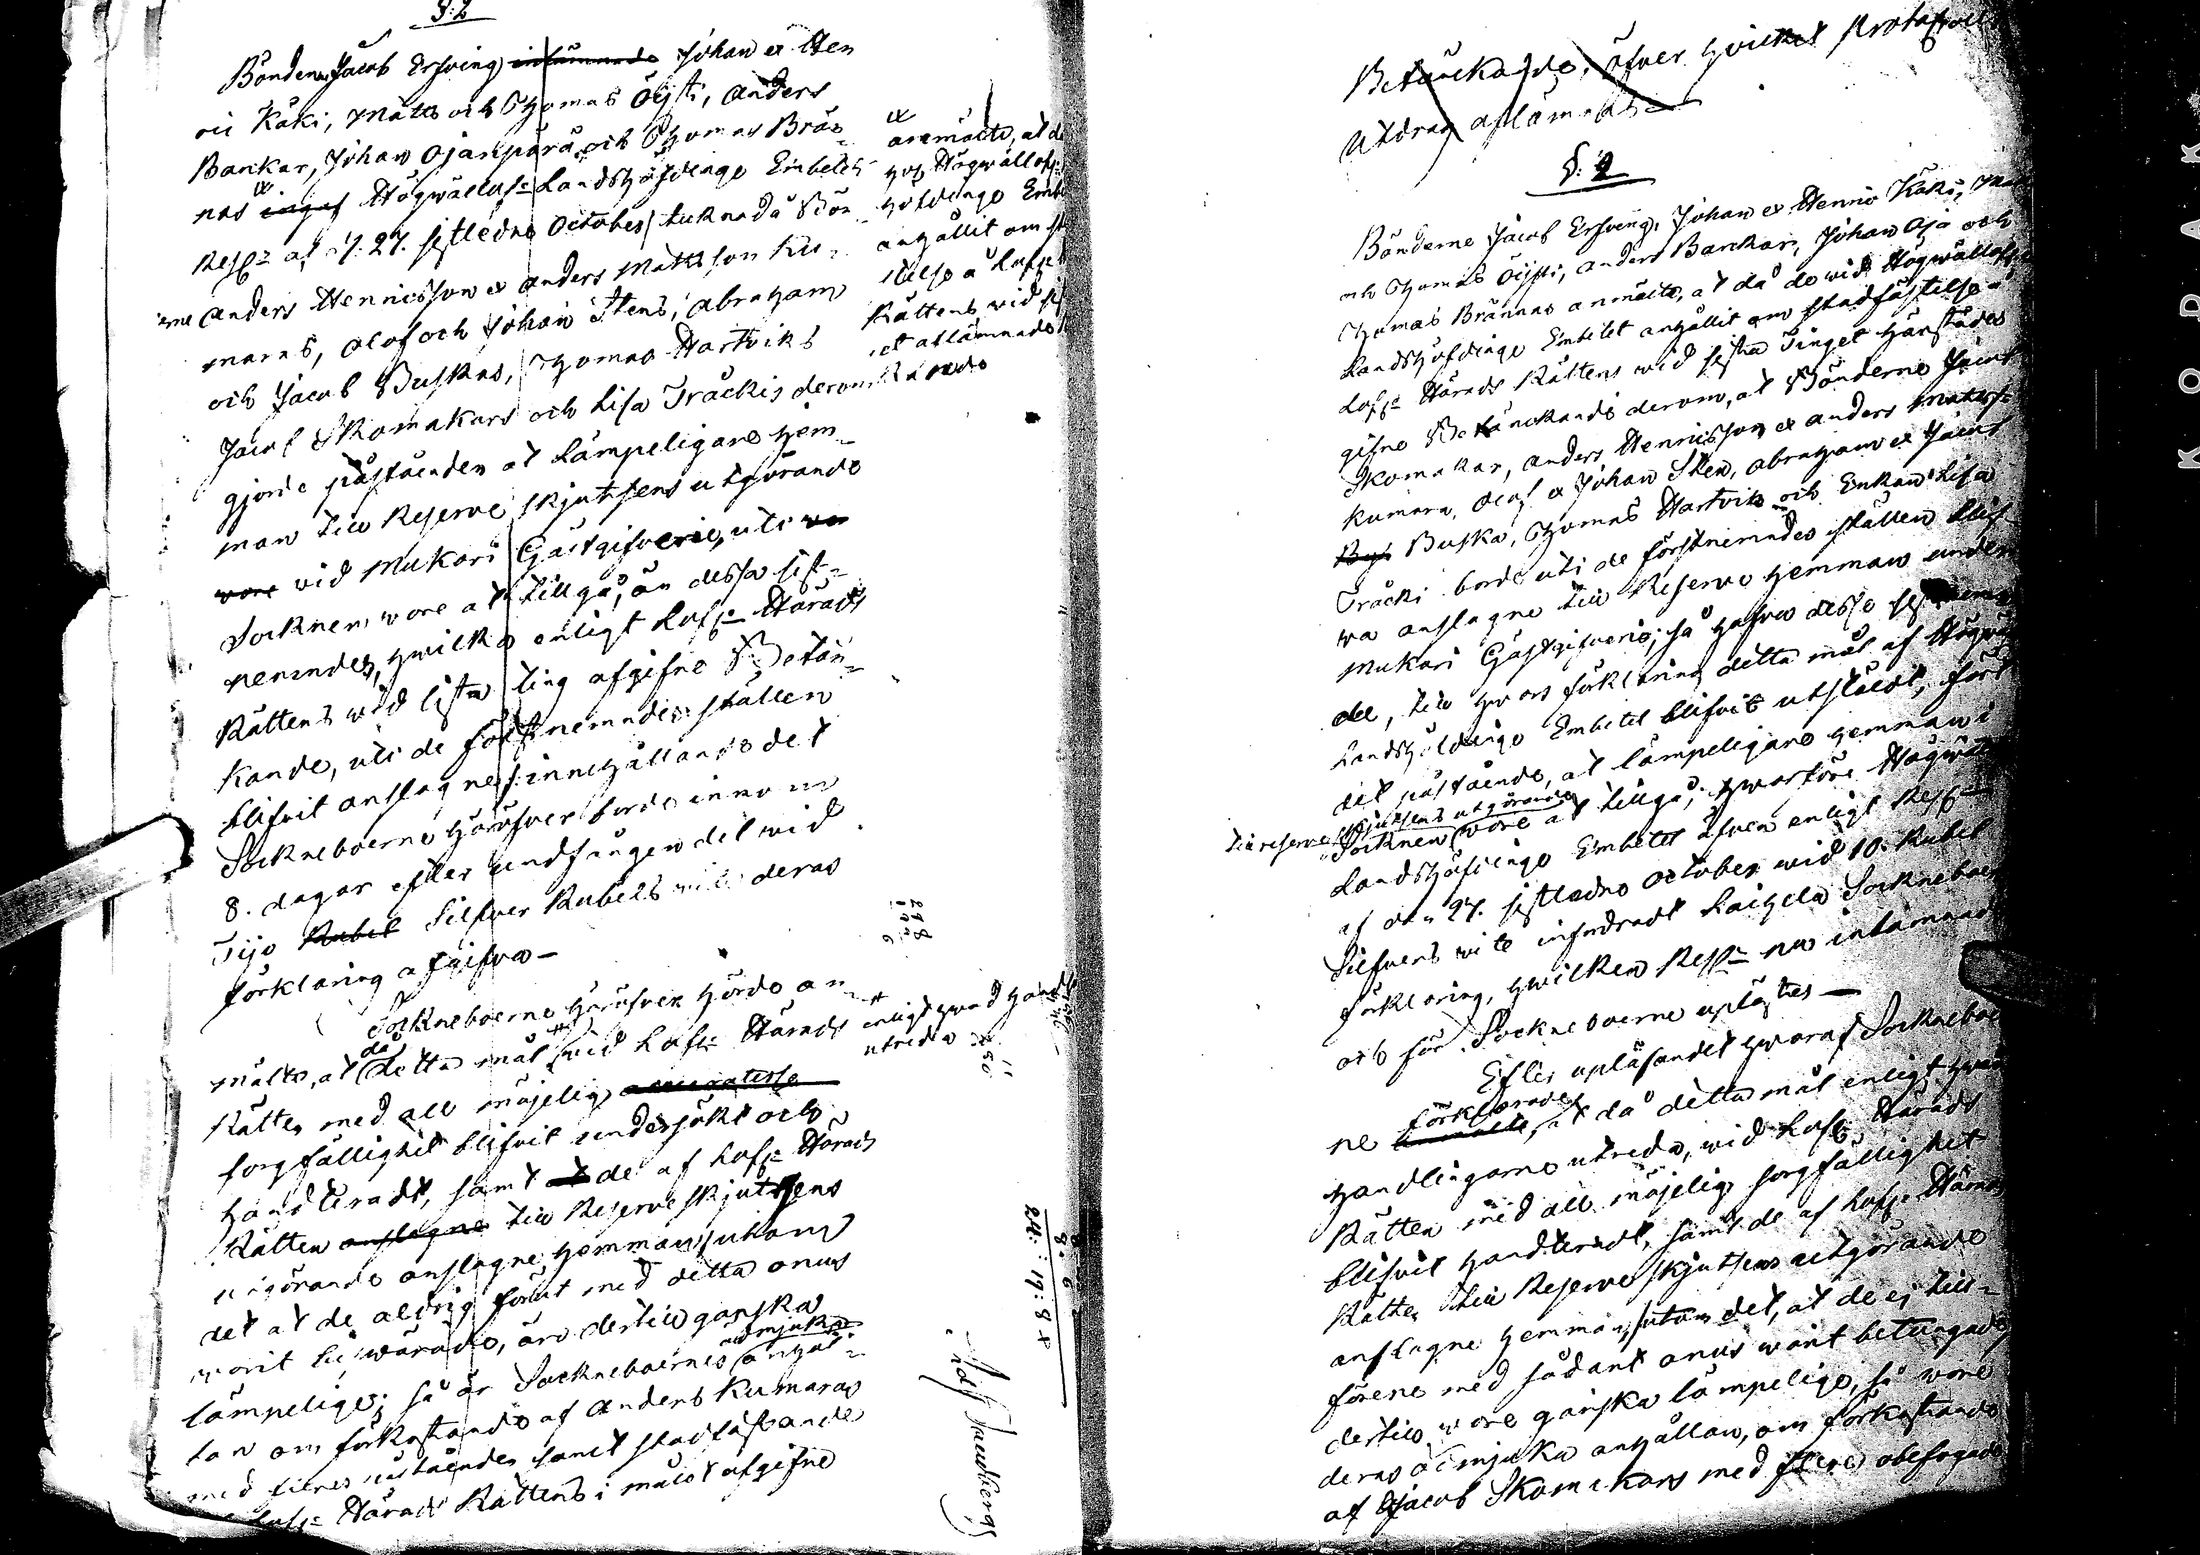 §:2
Bönderne Jacob Ersving inlämnade Johan & Hen
ric Käki, Matts och Thomas Öysti, Anders
Bankar, Johan Ojanperä och Thomas Brän-
nas ingaf Högwällofl: Landshöfdinge Embetets
Resl: af d. 27. sistledne October, huknada Bön-
derne Anders Hennicsson & Anders Mattsson Ku-
mares, Olof och Johan Stens, Abraham
och Jacob Buskas, Thomas Hartviks
Jacob Skomakars och Lisa Träckis derom
gjorde påståenden at lämpeligare hem-
man till Reserve skjutsens utgörande
wore wid Mukari Gästgifverie, uti
Socknen wore at tillgå, än dessa sist-
nemndes, hwilka enligt Lofl: Härads
Rättens wid sista ting afgifne Betän-
kande, uti de förstnemndes ställen
blifvit anslagne: innehållande det
Sockneboerne häröfver borde innom
8. dagar efter undfångendet wid
Tijo Rubel Silfver Rubels wite deras
förklaring afgifva —
Sockneboerne häröfver hörde an-
mälte, at då detta mål wid Lofl: Härads
Rätten med all möjelig
sorgfällighet blifvit undersökt och
handteradt, samt at de af Lofl: Härads
Rätten anslagne till Reserve skjutsens
utgörande anslagne hemman, utom
det at de aldrig förut med detta onus
warit besvärade, äro dertill ganska
lämpelige; så är Sockneboernes ödmjuka anhål-
lan om förkastande af Anders Kumaras
med fleres påståenden samt stadfästande
af Lofl: Härads Rättens i målet afgifne
&
anmälte, at de
hos Högwällofl:
höfdinge Embe
anhållit om st
telse å Lofl:
Rättens wid sis
et aflämnade
kande
# enligt hwad handl
utreda
Betänckande, öfver hvicket Protocoll
Utdrag aflämnas
§: 2
Bönderne Jacob Ersving, Johan & Henric Käki, Mat
och Thomas Öysti, Anders Bankar, Johan Oja och
Thomas Brännas anmälte, at då de wid Högwällofl:
Landshöfdinge Embetet anhållit om stadfästelse å
Lofl: Härads Rättens wid sista Tinget härstädes
gifne Betänckande derom, at Bönderne Jacob
Skomakar, Anders Hennicsson & Anders Matss:
Kumara, Olof & Johan Sten, Abraham & Jacob
Buska, Thomas Hartvik och Enkan Lisa
Träcki borde uti de förstnemndes ställen blif
wa anslagne till Reserve hemman under
Mukari Gästgifverie; så hafva desse sistnemn
de, till hwars förklaring detta mål af Högwä
Landshöfdinge Embetet blifvit utstäldt, före
det påstående, at lämpeligare hemman i
till reserve skjutsens utgörande
Socknen wore at tillgå; hwarföre Högwäl
Landshöfdinge Embetet äfven enligt Resl:
af den 27. sistledne October wid 10. Rubel
Silfvers wite infordradt Laihela Sockneboer
förklaring, hwilken Resl: nu inlämnad
och för Sockneboerne uplästes —
Efter upläsandet hwaraf Sockneboe
ne förklarade, at då detta mål enligt hwad
handlingarne utreda, wid Lofl: Härads
Rätten med all möjelig sorgfällighet
blifvit handteradt, samt de af Lofl: Härads
Rätten till Reserve skjutsens utgörande
anslagne hemman, utom det, at de ej till-
förene med sådant onus warit betungade,
dertill wore ganska lämpelige, så wore
deras ödmjuka anhållan, om förkastande
af Jacob Skomakars med fleres obefogade